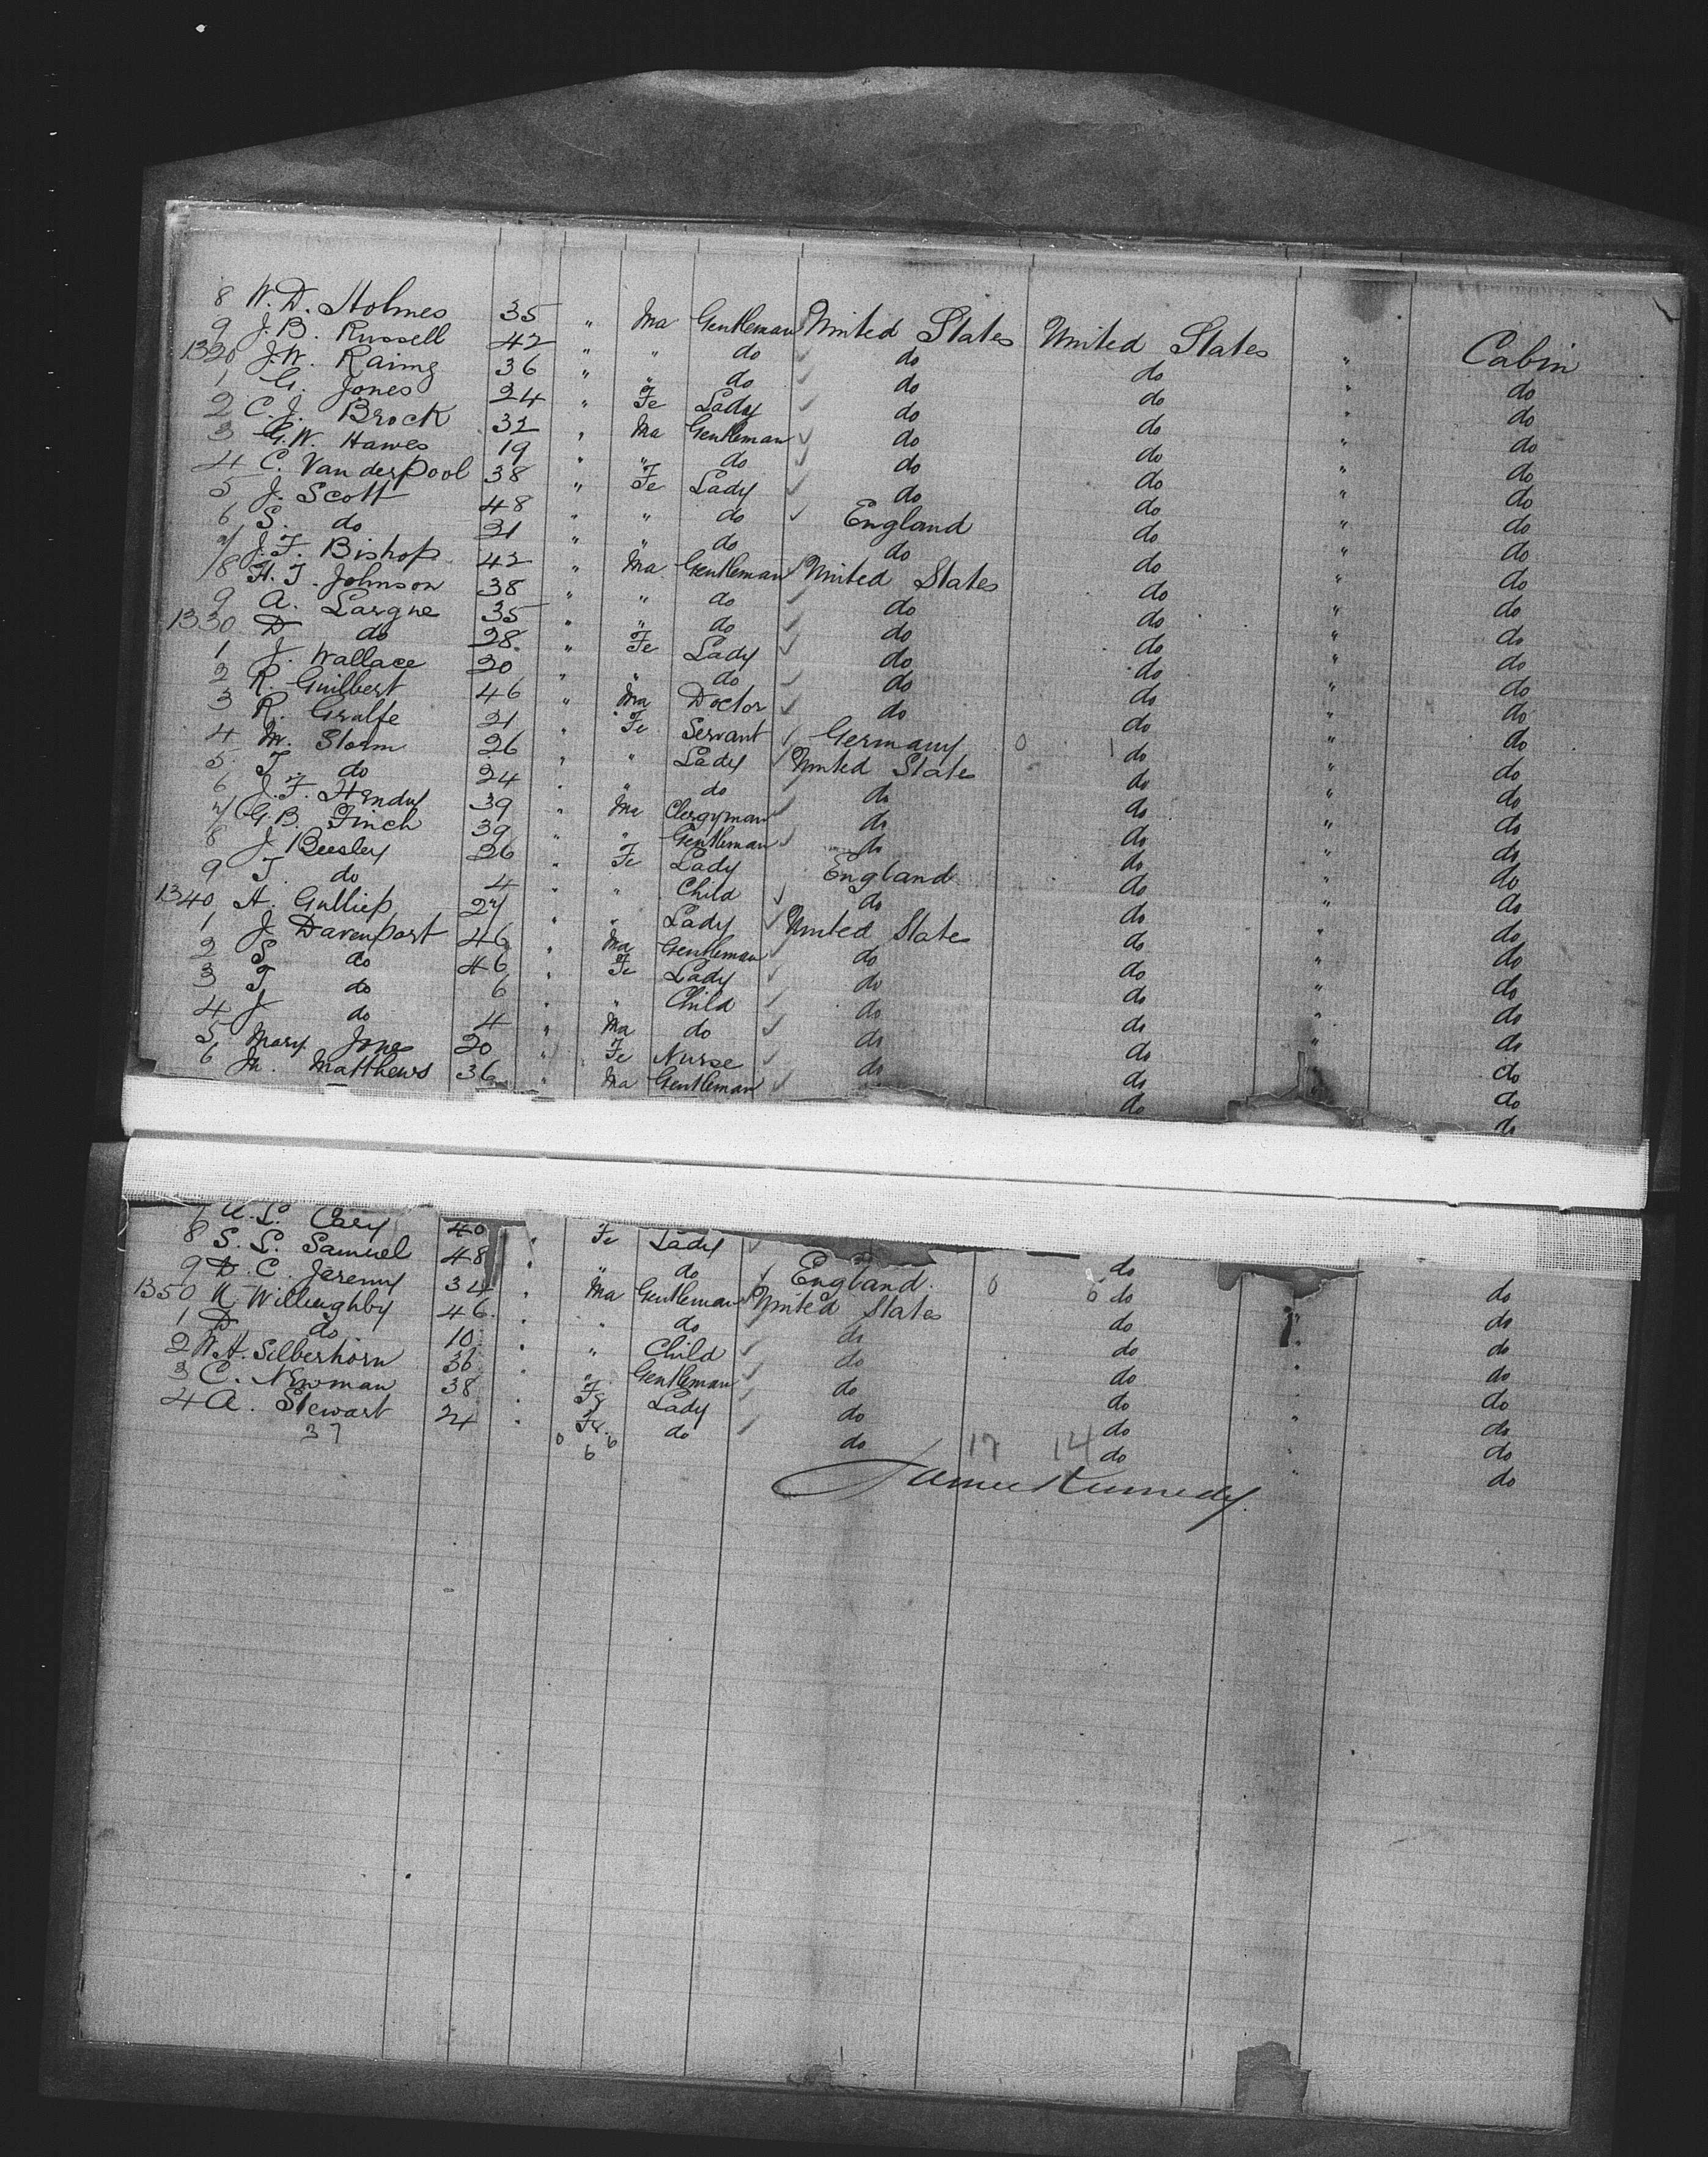 8 W. D. Holmes 35 " Ma Gentleman United States United States " Cabin
9 J. B. Russell 42 " " do do do " do
1320 J. W. 36 " " do do do " do
1 G. Jones 24 " Fe Lady do do " do
2 C. J. Brock 32 " Ma Gentleman do do " do
3 G. W. Hawes 19 " " do do do " do
4 C. Vanderpool 38 " Fe Lady do do " do
5 J. Scott 48 " " do England do " do
6 S. do 21 " " do do do " do
7 J. F. Bishop 42 " Ma Gentleman United States do " do
8 H. J. Johnson 38 " " do do do " do
9 A. Largne 35 " " do do do " do
1330 D do 28 " Fe Lady do do " do
1 J. Wallace 20 " " do do do " do
2 R. Guilbert 46 " Ma Doctor do do " do
3 R. Grulfe 21 " Fe Servant Germany 0 do " do
4 M. Storm 26 " " Lady United States do " do
5 J do 24 " " do do do " do
6 J. F. Hendy 39 " Ma Clergyman do do " do
7 G. B. Finch 39 " " Gentleman do do " do
8 J. Beesley 26 " Fe Lady England do " do
9 J. do 4 " " Child do do " do
1340 H. Gulliep 27 " " Lady United States do " do
1 J. Davenport 46 " Ma Gentleman do do " do
2 S do 46 " Fe Lady do do " do
3 J do 6 " " Child do do " do
4 J do 4 " Ma do do do " do
5 Mary Jones 20 " Fe Nurse do do do
6 M. Matthews 36 " Ma Gentleman do do
7 A. L. Cary 40 " Fe Lady do do
8 S. L. Samuel 48 " " do England 0 0 do do
9 D. C. Jeremy 34 " Ma Gentleman United States do " do
1350 W Willoughby 46 " " do do do " do
1 D do 10 " " Child do do " do
2 W. H. Silberhorn 36 " " Gentleman do do do
3 C. Newman 38 " Fe Lady do do " do
4 A. Stewart 24 " Fe do do do " do
37 0 6 6 17 14
James Kennedy